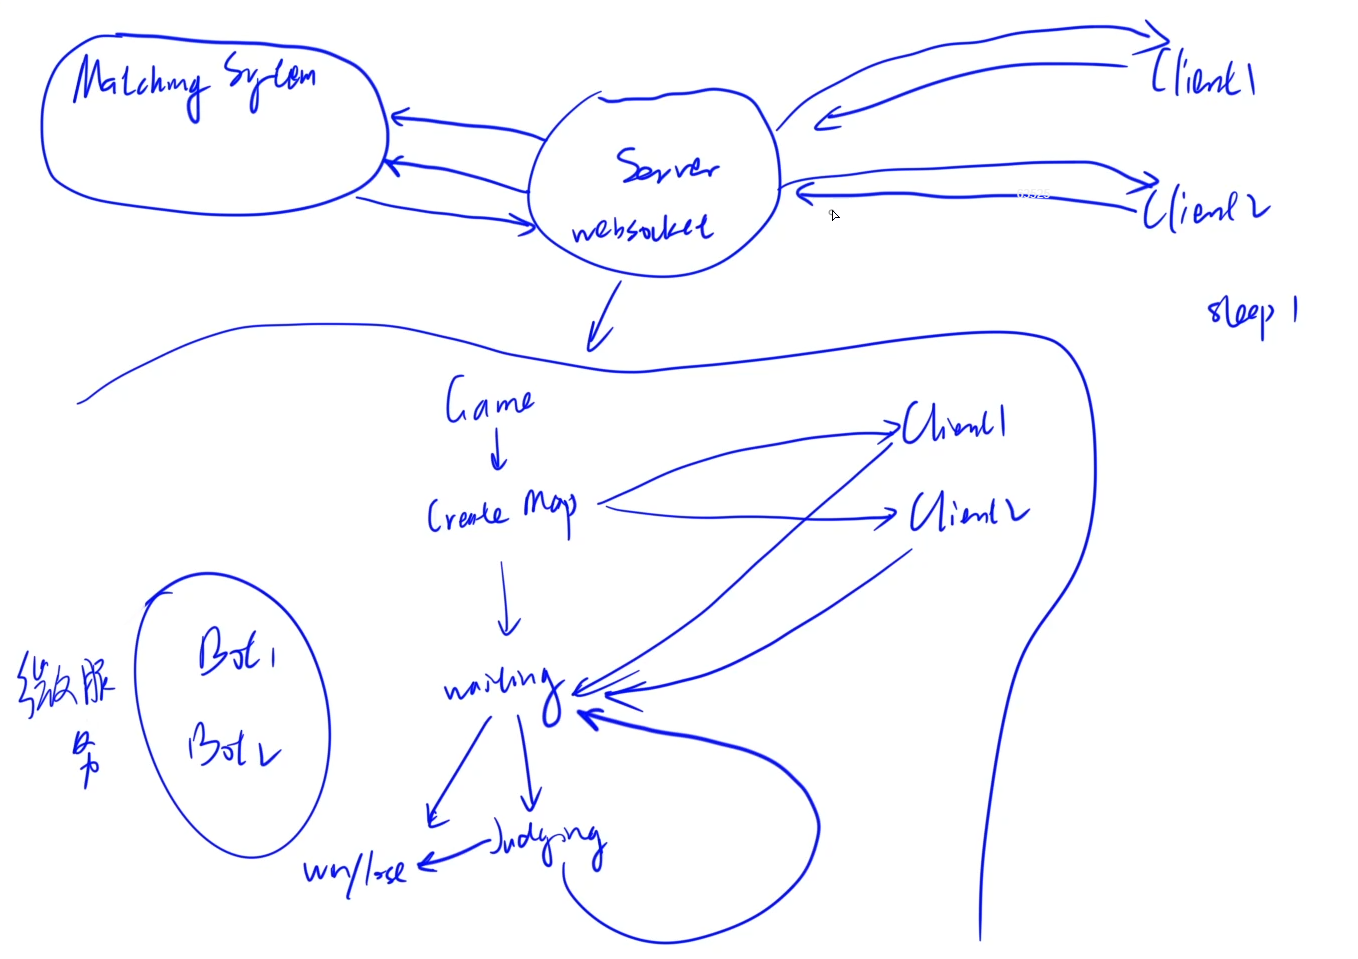 Matching System
Server
websocket
Client1
Client2
sleep 1
Game
Create Map
Client1
Client2
waiting
Judging
win/lose
Bot1
Bot2
微服
务